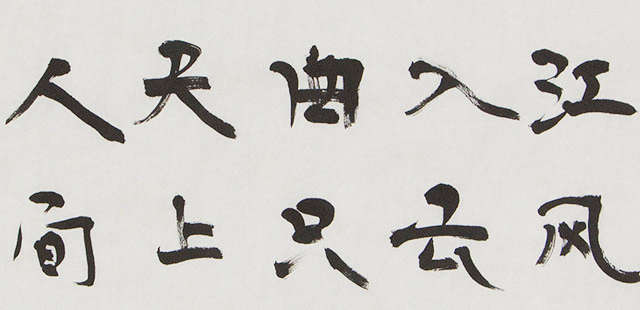 江风
入云
曲只
天上
人间